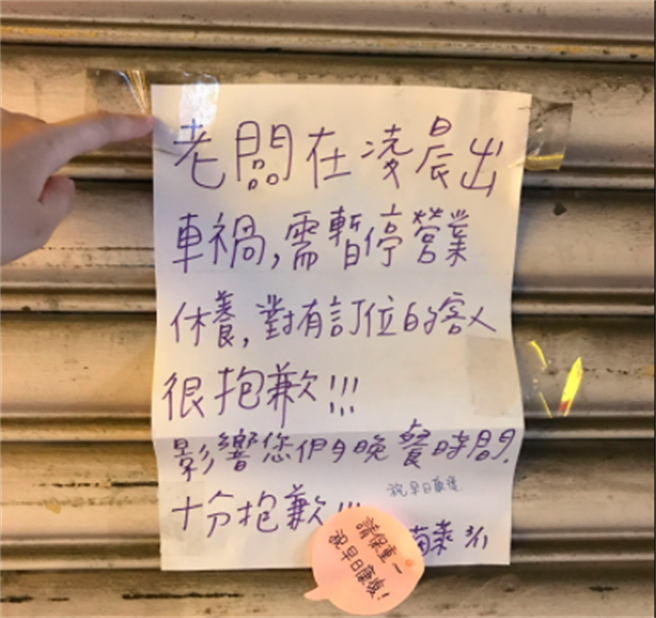 老闆在凌晨出
車禍,需暫停營業
休養,對有訂位的客人
很抱歉!!!
影響您們今晚餐時間.
祝早日康復
十分抱歉!!!
3/1
請保重一
祝早日康復!